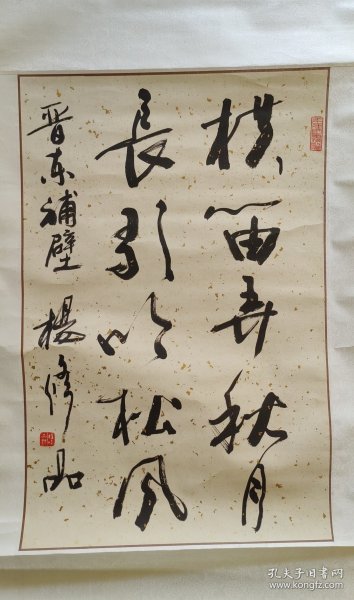 横笛弄秋月
長歌吟松风
晋东補壁 楊修品
孔夫子旧书网
www.kongfz.com